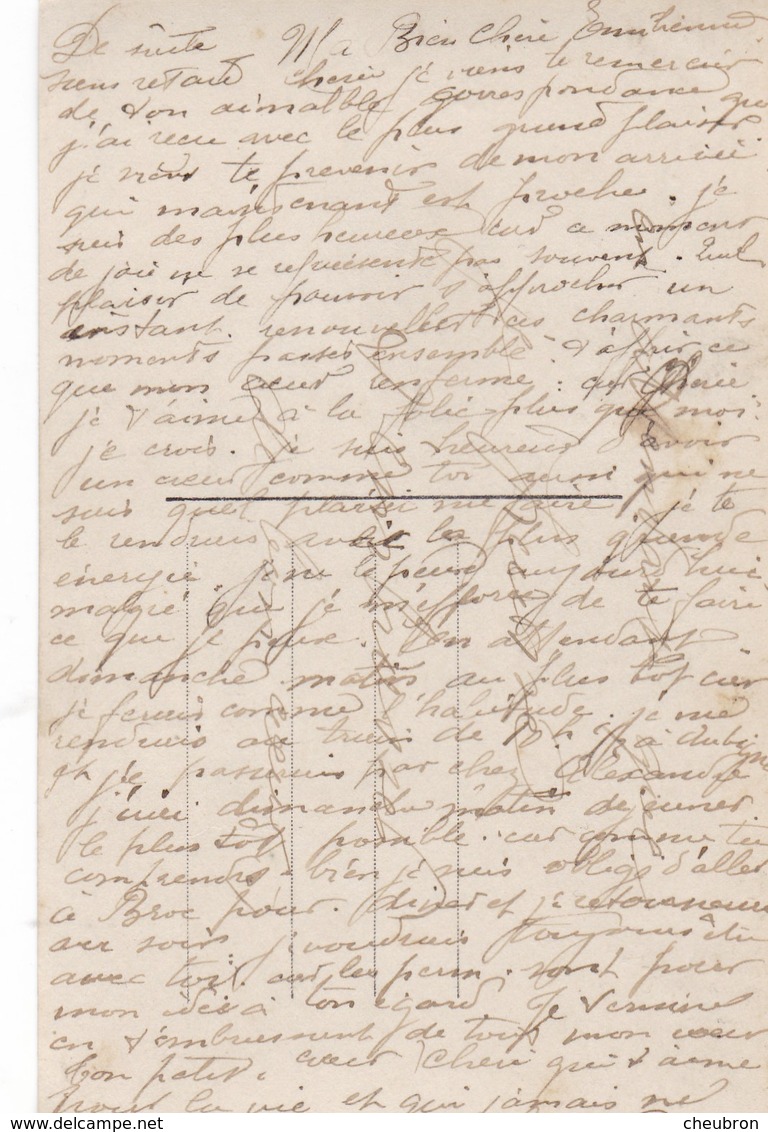 De suite Ma Bien Chère Emilienne
sans retard cherie je viens te remercier
de ton aimable correspondance que
j'ai recu avec le plus grand plaisir.
je viens te prevenir de mon arrivée
qui maintenant est proche. je
suis des plus heureux car ce moment
de joie ne se represente pas souvent. Quel
plaisir de pouvoir s'approcher un
instant. renouveller ces charmants
moments passés ensemble. t'offrir ce
que mon cœur renferme : car cherie
je t'aime à la folie plus que moi
je crois. je suis heureux d'avoir
un cœur comme toi aussi qui ne
sais quel plaisir me faire je te
le rendrais avec la plus grande
énergie. je ne le peux aujourd'hui
malgré que je m'efforce de te faire
ce que je peux. En attendant
dimanche matin au plus tot car
je ferais comme d'habitude. je me
rendrais au train de 9h
et je passerais par chez Alexandre
j'irai dimanche matin dejeuner
le plus tôt possible. car comme tu
comprends bien je suis obligé d'aller
à Broc pour diner et je retournerai
au soir. je voudrais toujours être
avec toi. car les perm. sont pour
mon idée à ton egard Je termine
en t'embrassant de tout mon cœur
Ton petit cœur cheri qui t'aime
pour la vie et qui jamais ne
cheubron